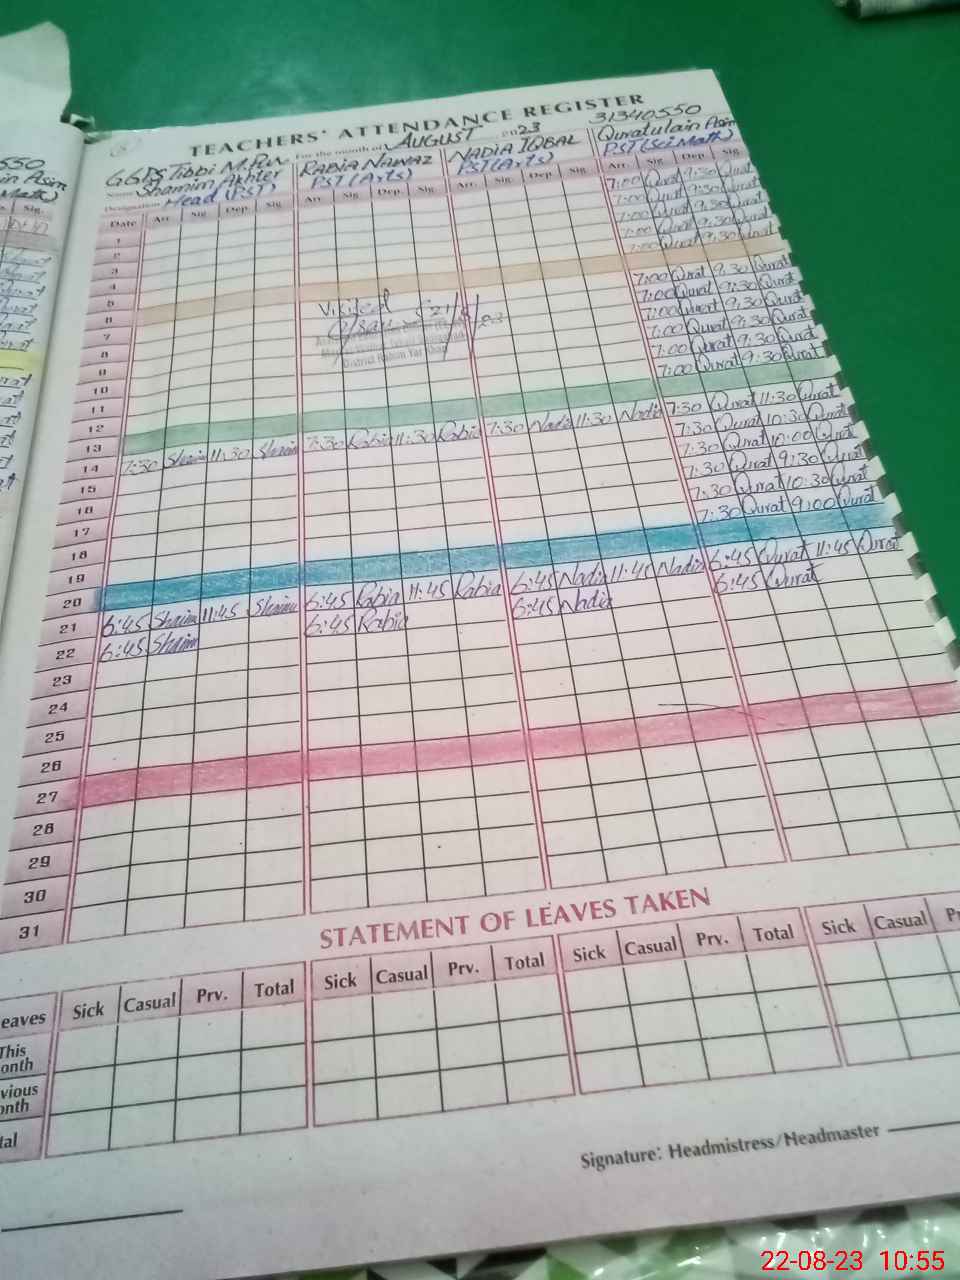 TEACHERS' ATTENDANCE REGISTER
For the month of AUGUST 2023 31340550
GGPS Tibbi M.Pur
Shamim Akhter RABIA NAWAZ NADIA IQBAL Quratulain Asim
Designation Head (PST) PST (Arts) PST (Arts) PST (Sci Math)
Date Arr. Sig. Dep. Sig. Arr. Sig. Dep. Sig. Arr. Sig. Dep. Sig. Arr. Sig. Dep. Sig.
1 7:00 Qurat 9:30 Qurat
2 7:00 Qurat 9:30 Qurat
3 7:00 Qurat 9:30 Qurat
4 7:00 Qurat 9:30 Qurat
5
6
7 7:00 Qurat 9:30 Qurat
8 7:00 Qurat 9:30 Qurat
9 7:00 Qurat 9:30 Qurat
10 7:00 Qurat 9:30 Qurat
11 7:00 Qurat 9:30 Qurat
12 7:00 Qurat 9:30 Qurat
Visited
District Rahim Yar Khan
13
14 7:30 Shamim 11:30 Shamim 7:30 Rabia 11:30 Rabia 7:30 Nadia 11:30 Nadia 7:30 Qurat 11:30 Qurat
15 7:30 Qurat 10:30 Qurat
16 7:30 Qurat 10:00 Qurat
17 7:30 Qurat 9:30 Qurat
18 7:30 Qurat 10:30 Qurat
19 7:30 Qurat 9:00 Qurat
20
21 6:45 Shamim 11:45 Shamim 6:45 Rabia 11:45 Rabia 6:45 Nadia 11:45 Nadia 6:45 Qurat 11:45 Qurat
22 6:45 Shamim 6:45 Rabia 6:45 Nadia 6:45 Qurat
23
24
25
26
27
28
29
30
31
STATEMENT OF LEAVES TAKEN
eaves Sick Casual Prv. Total Sick Casual Prv. Total Sick Casual Prv. Total Sick Casual Pr
This
onth
vious
onth
tal
Signature: Headmistress/Headmaster
22-08-23 10:55